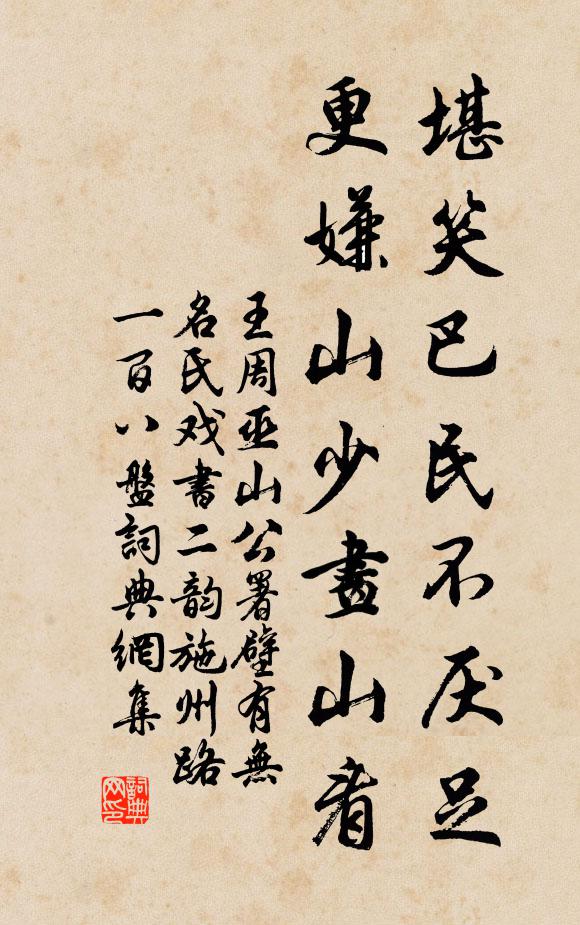 堪笑巴民不厌足
更嫌山少畫山看
王周巫山公署壁有無
名氏戏書二韵施州路
一百八盤詞典網集
詞典
网印